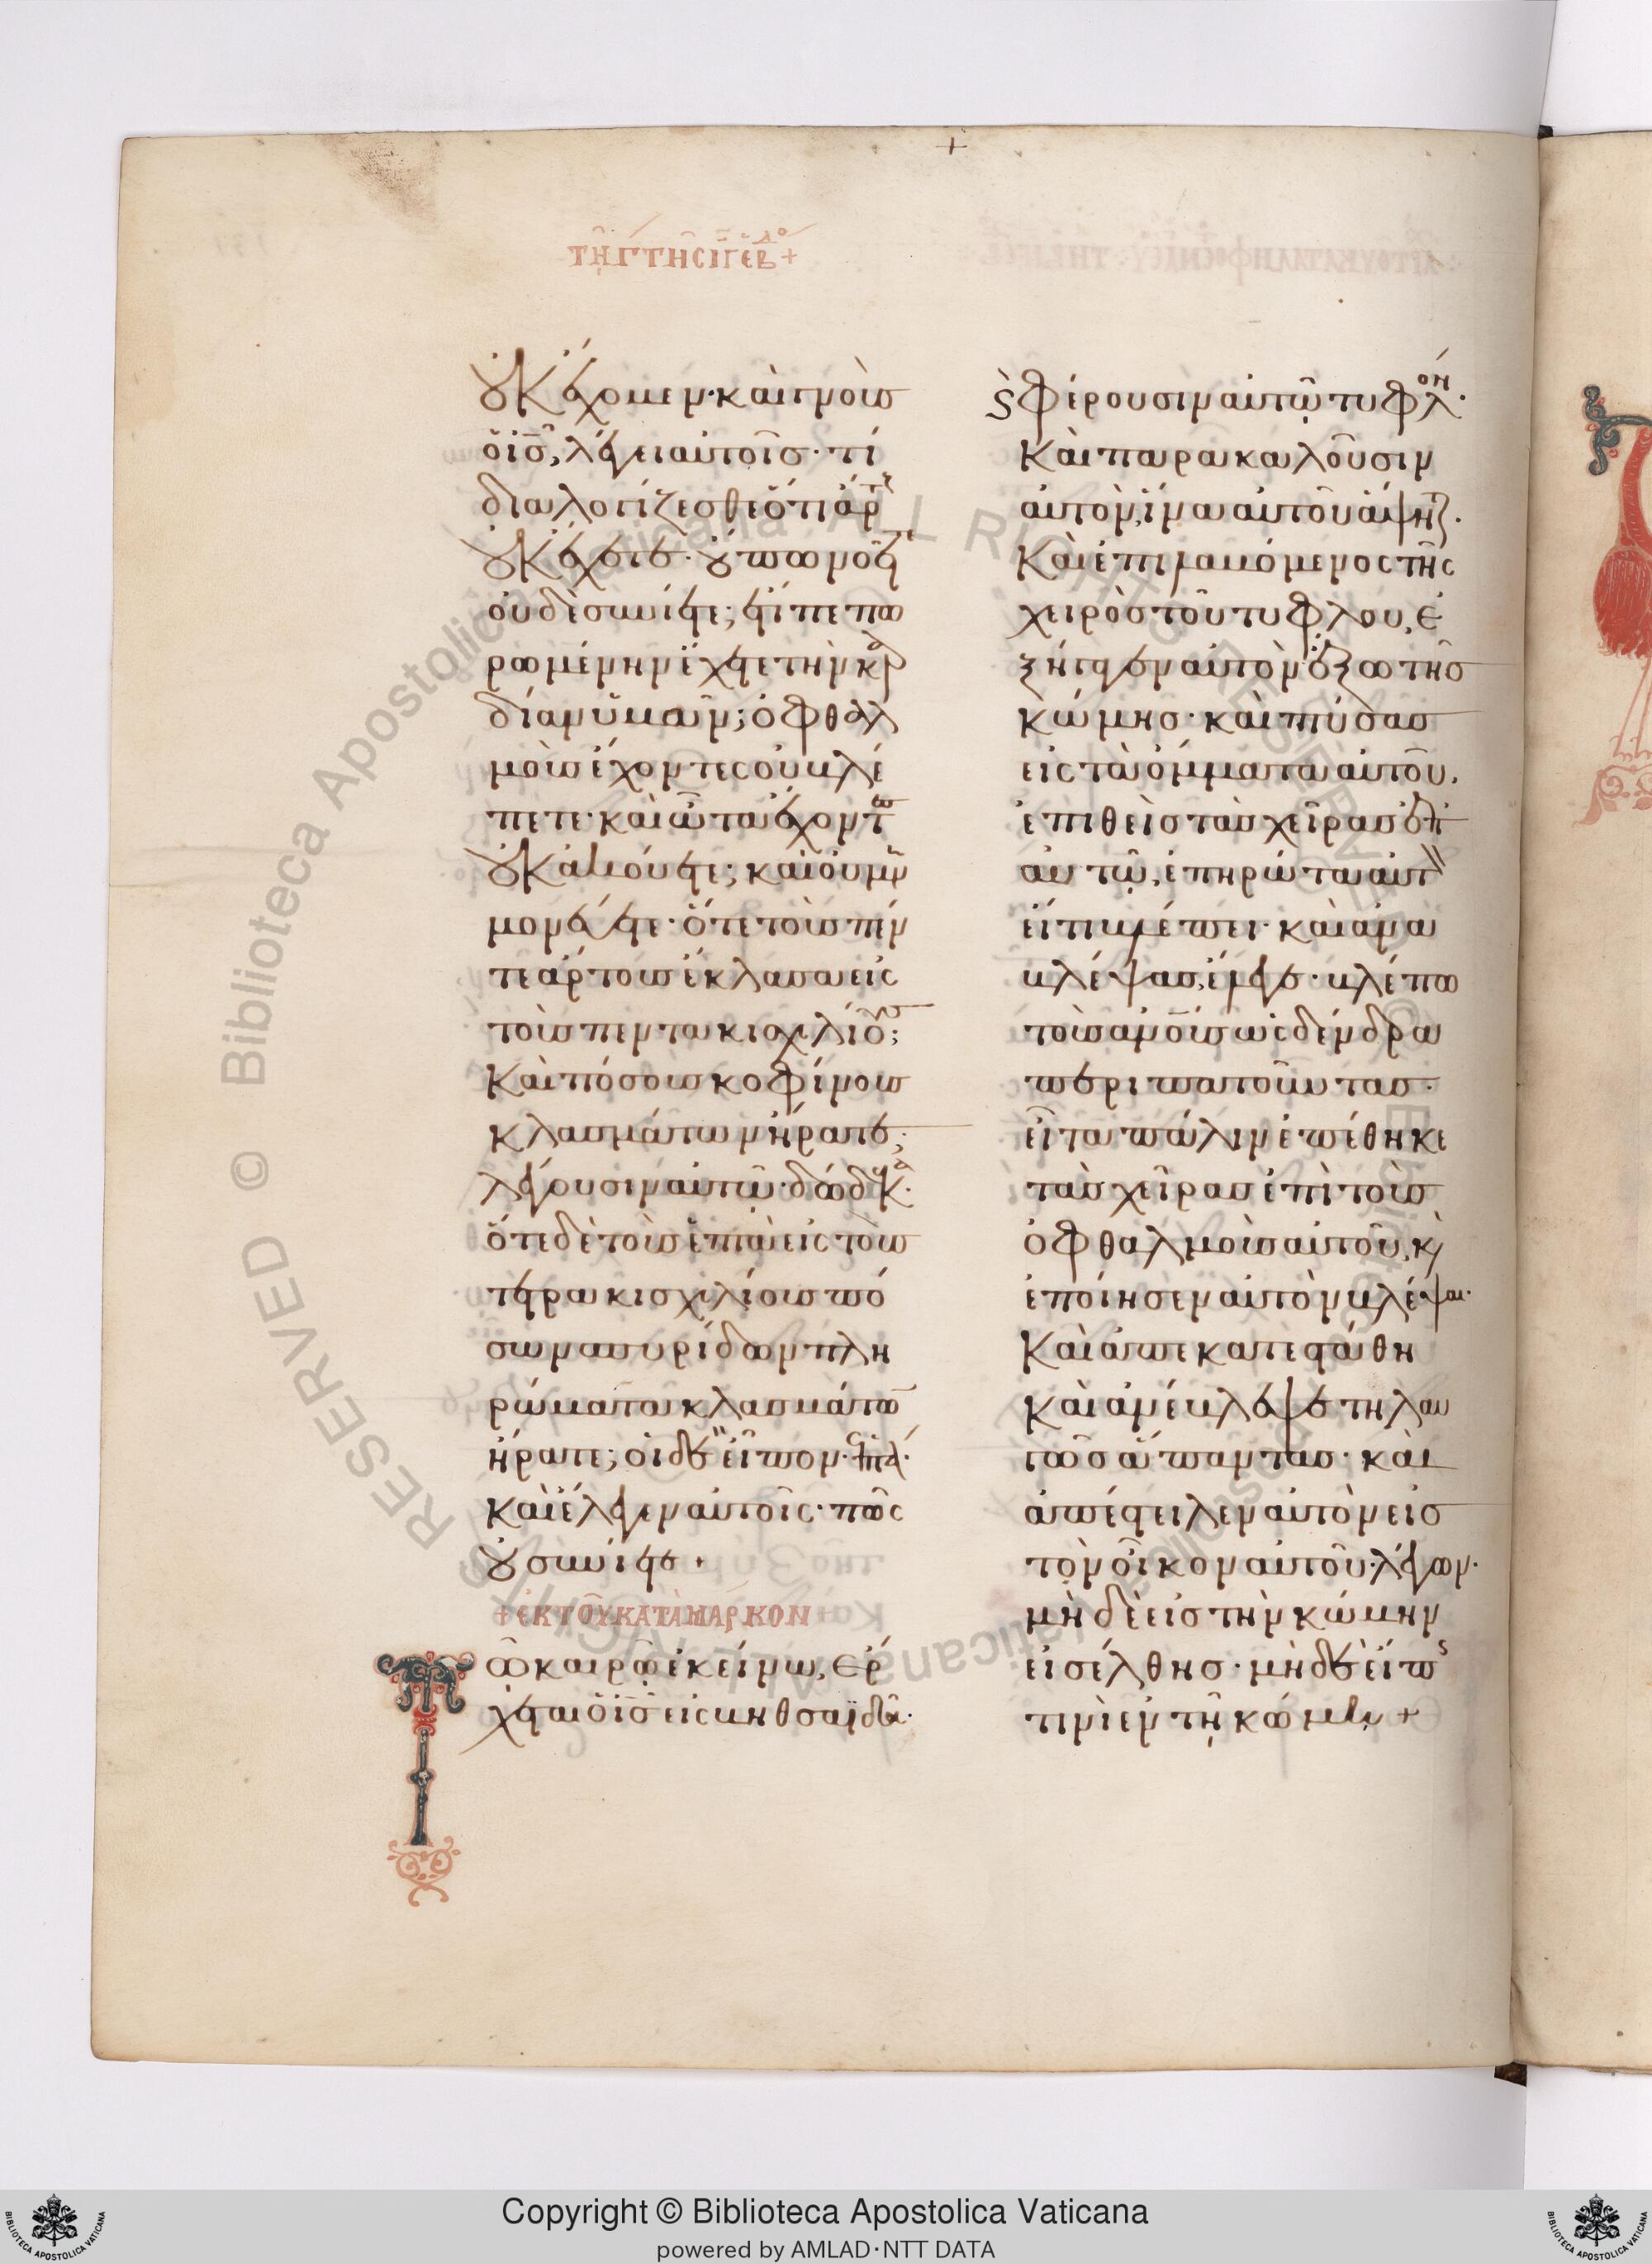 ΤΗ Γ ΤΗϹ ΙΓ ΕΒΔΟ +
οὐκ ἔχομεν· καὶ γνοὺς
ὁ ις, λέγει αὐτοῖς· τί
διαλογίζεσθε ὅτι ἄρτους
οὐκ ἔχετε· οὔπω νοεῖτε
οὐδὲ συνίετε; ἔτι πεπω
ρωμένην ἔχετε τὴν καρ
δίαν ὑμῶν; ὀφθαλ
μοὺς ἔχοντες οὐ βλέ
πετε· καὶ ὦτα ἔχοντες
οὐκ ἀκούετε; καὶ οὐ μνη
μονεύετε· ὅτε τοὺς πέν
τε ἄρτους ἔκλασα εἰς
τοὺς πεντακισχιλίους;
Καὶ πόσους κοφίνους
κλασμάτων ἤρατε;
λέγουσιν αὐτῷ· δώδεκα·
ὅτε δὲ τοὺς ἑπτὰ εἰς τοὺς
τετρακισχιλίους πό
σων σπυρίδων πλη
ρώματα κλασμάτων
ἤρατε; οἱ δὲ εἶπον· ἑπτά·
Καὶ ἔλεγεν αὐτοῖς· πῶς
οὐ συνίετε +
+ ΕΚ ΤΟΥ ΚΑΤΑ ΜΑΡΚΟΝ
Τῶ καιρῶ ἐκείνω, ἔρ
χεται ὁ ις εἰς βηθσαϊδά·
καὶ φέρουσιν αὐτῷ τυφλὸν·
Καὶ παρακαλοῦσιν
αὐτὸν, ἵνα αὐτοῦ ἅψηται·
Καὶ ἐπιλαβόμενος τῆς
χειρὸς τοῦ τυφλοῦ, ἐ
ξήγαγεν αὐτὸν ἔξω τῆς
κώμης· καὶ πτύσας
εἰς τὰ ὄμματα αὐτοῦ,
ἐπιθεὶς τὰς χεῖρας
αὐτῷ, ἐπηρώτα αὐτὸν
εἴ τι βλέπει· καὶ ἀνα
βλέψας, ἔλεγε· βλέπω
τοὺς ανους ὡς δένδρα
περιπατοῦντας·
εἶτα πάλιν ἐπέθηκε
τὰς χεῖρας ἐπὶ τοὺς
ὀφθαλμοὺς αὐτοῦ, καὶ
ἐποίησεν αὐτὸν βλέψαι·
Καὶ ἀπεκατεστάθη
καὶ ἀνέβλεψε τηλαυ
γῶς ἅπαντας· καὶ
ἀπέστειλεν αὐτὸν εἰς
τὸν οἶκον αὐτοῦ· λέγων·
μὴ δὲ εἰς τὴν κώμην
εἰσέλθης· μὴ δὲ εἴπης
τινὶ ἐν τῇ κώμῃ +
Copyright © Biblioteca Apostolica Vaticana
powered by AMLAD·NTT DATA